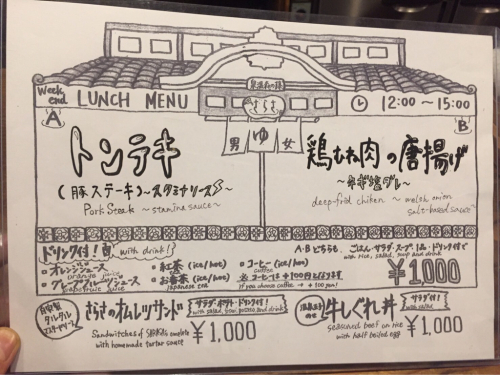 さらさ
Week end LUNCH MENU 12:00 〜 15:00
男 ゆ 女
A
トンテキ
(豚ステーキ)〜スタミナソース〜
Pork Steak 〜stamina sauce〜
B
鶏むね肉の唐揚げ
〜ネギ塩ダレ〜
deep-fried chiken 〜welsh onion
salt-based sauce〜
ドリンク付! with drink!
・オレンジジュース
orange juice
・グレープフルーツジュース
grapefruits juice
・紅茶 (ice/hot)
・お番茶 (ice/hot)
Japanese tea
・コーヒー (ice/hot)
coffee
※コーヒーは+100円となります
if you choose coffee → +100 yen!
A・Bどちらも、ごはん・サラダ・スープ・1品・ドリンク付で
with rice, salad, soup and drink
¥1000
自家製タルタルマスタードソース
さらさのオムレツサンド
サラダ・ポテト・ドリンク付!
with salad, fried potato and drink
Sandwitches of SARASA's omelete
with homemade tartar sauce
¥1,000
温泉玉子のせ
牛しぐれ丼
サラダ付!
with salad
seasoned beef on rice
with half boiled egg
¥1,000